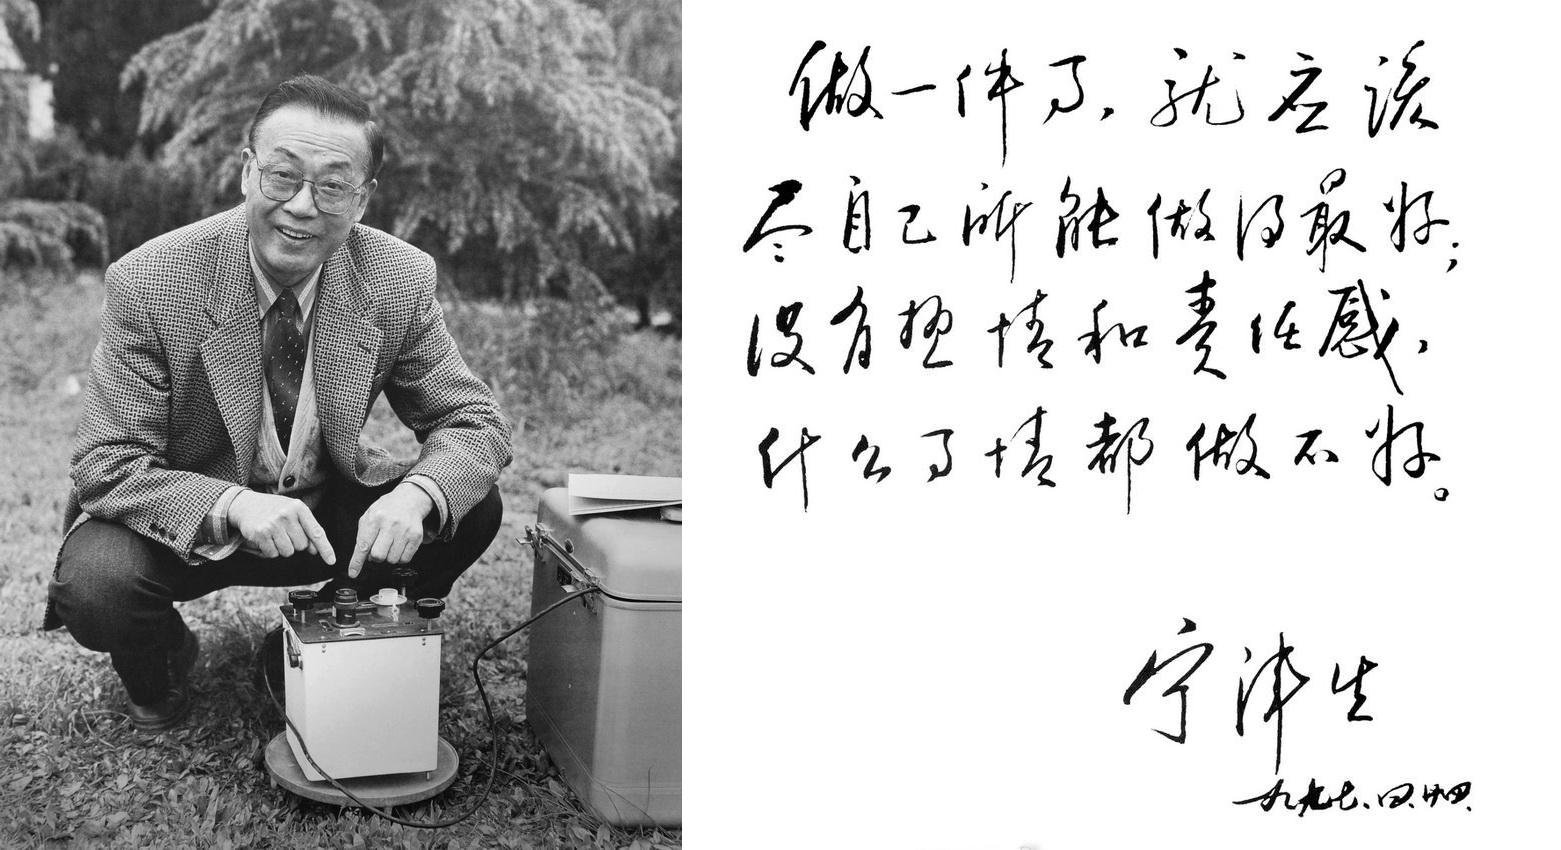 做一件事，就应该
尽自己所能做得最好；
没有热情和责任感，
什么事情都做不好。
宁津生
一九九七.四.廿四.